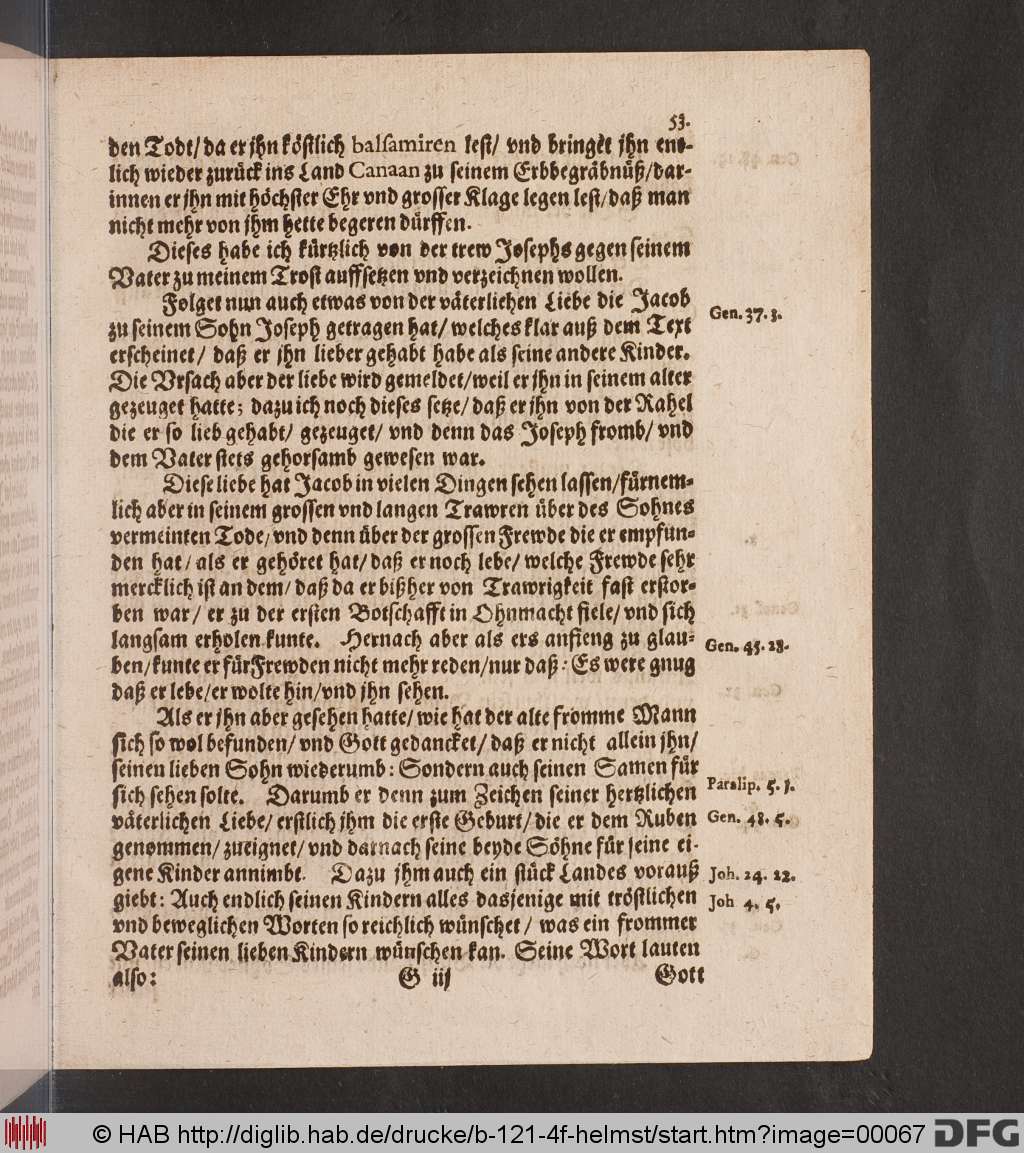 53.
den Todt/ da er jhn köstlich balsamiren lest/ vnd bringet jhn ent-
lich wieder zurück ins Land Canaan zu seinem Erbbegräbnüß/dar-
innen er jhn mit höchster Ehr vnd grosser Klage legen lest/ daß man
nicht mehr von jhm hette begeren dürffen.
Dieses habe ich kürtzlich von der trew Josephs gegen seinem
Vater zu meinem Trost auffsetzen vnd verzeichnen wollen.
Folget nun auch etwas von der väterlichen Liebe die Jacob
zu seinem Sohn Joseph getragen hat/ welches klar auß dem Text
Gen. 37. 3.
erscheinet/ daß er jhn lieber gehabt habe als seine andere Kinder.
Die Vrsach aber der liebe wird gemeldet/weil er jhn in seinem alter
gezeuget hatte; dazu ich noch dieses setze/ daß er jhn von der Rahel
die er so lieb gehabt/ gezeuget/ vnd denn das Joseph fromb/ vnd
dem Vater stets gehorsamb gewesen war.
Diese liebe hat Jacob in vielen Dingen sehen lassen/fürnem-
lich aber in seinem grossen vnd langen Trawren über des Sohnes
vermeinten Tode/ vnd denn über der grossen Frewde die er empfun-
den hat/ als er gehöret hat/ daß er noch lebe/ welche Frewde sehr
mercklich ist an dem/ daß da er bißher von Trawrigkeit fast erstor-
ben war/ er zu der ersten Botschafft in Ohnmacht fiele/ vnd sich
langsam erholen kunte. Hernach aber als ers anfieng zu glau-
Gen. 45. 28.
ben/ kunte er für Frewden nicht mehr reden/nur daß: Es were gnug
daß er lebe/er wolte hin/vnd jhn sehen.
Als er jhn aber gesehen hatte/ wie hat der alte fromme Mann
sich so wol befunden/ vnd Gott gedancket/ daß er nicht allein jhn/
seinen lieben Sohn wiederumb: Sondern auch seinen Samen für
sich sehen solte. Darumb er denn zum Zeichen seiner hertzlichen
Paralip. 5. 1.
väterlichen Liebe/ erstlich jhm die erste Geburt/ die er dem Ruben
Gen. 48. 5.
genommen/ zueignet/ vnd darnach seine beyde Söhne für seine ei-
gene Kinder annimbt. Dazu jhm auch ein stück Landes vorauß
Joh. 24. 22.
giebt: Auch endlich seinen Kindern alles dasjenige mit tröstlichen
Joh 4. 5.
vnd beweglichen Worten so reichlich wünschet/ was ein frommer
Vater seinen lieben Kindern wünschen kan. Seine Wort lauten
also:
G iij
Gott
© HAB http://diglib.hab.de/drucke/b-121-4f-helmst/start.htm?image=00067
DFG